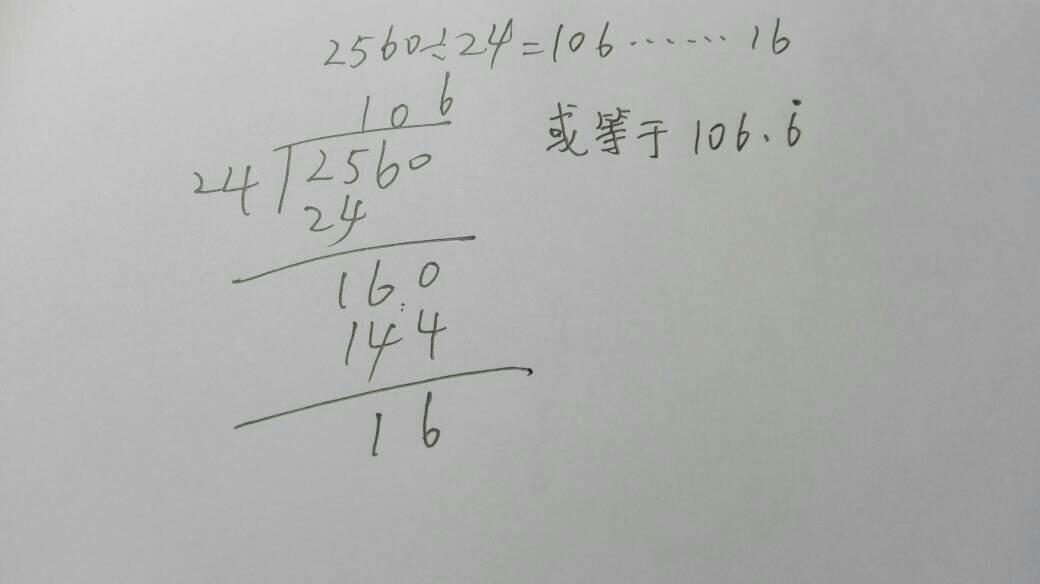 2560÷24=106……16
106
或等于 106.6̇
24)2560
24
160
144
16